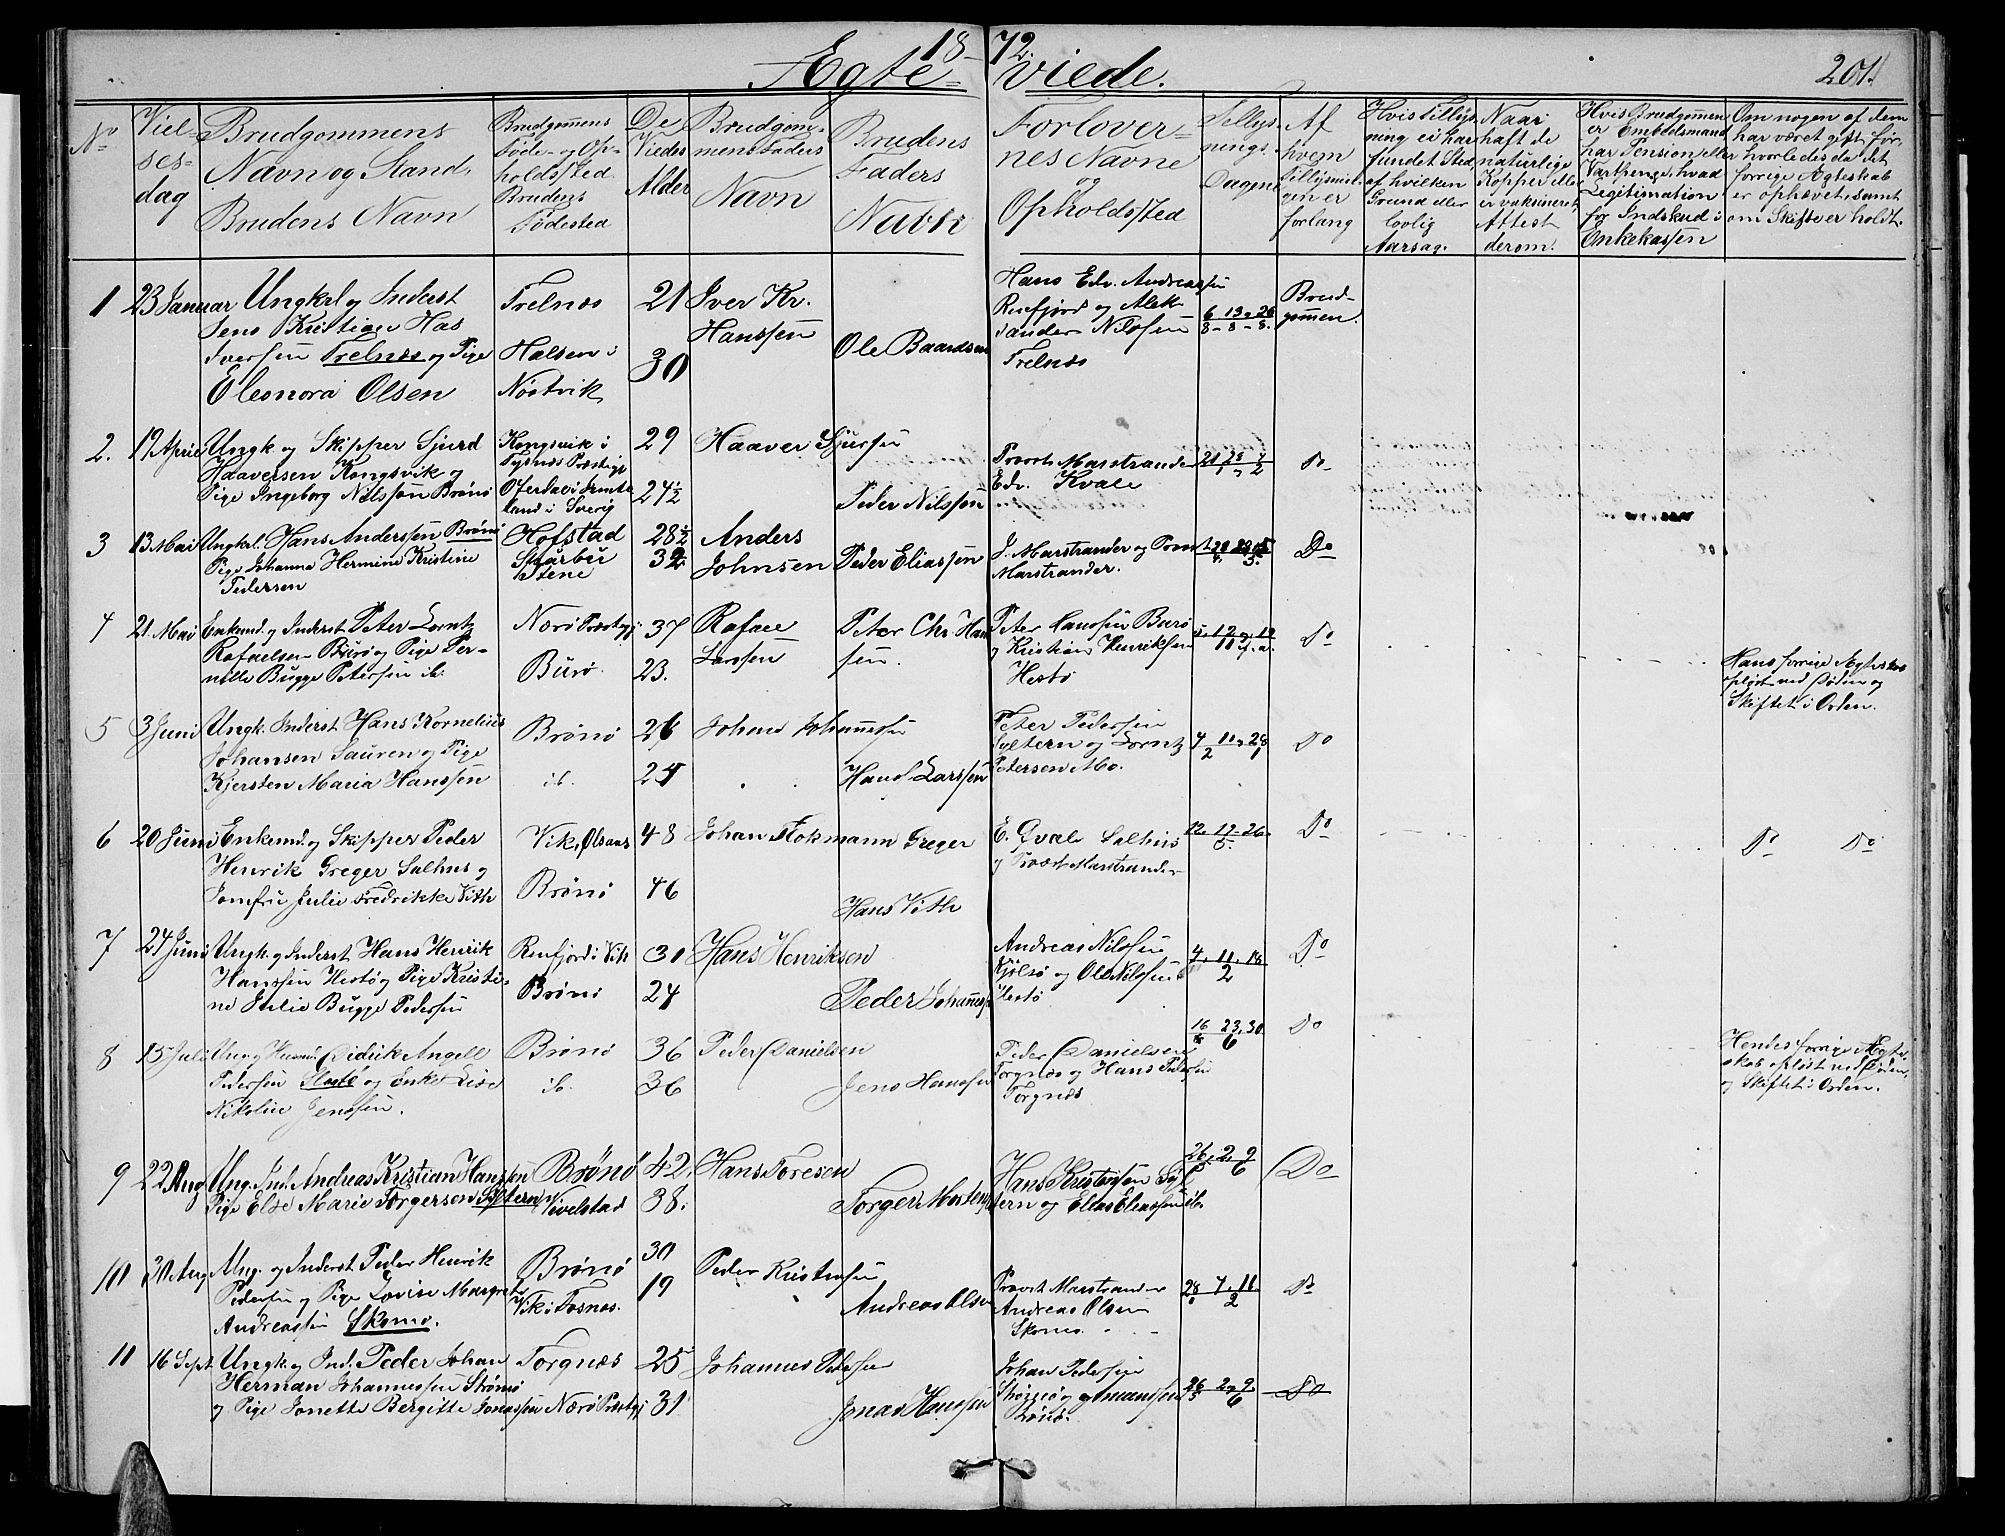 18 72.
Ægte- viede.
201.
No
Viel-
ses-
dag
Brudgommens
Navn og Stand,
Brudens Navn
Brudgommens
Føde- og Op-
holdssted
Brudens
Fødested
De
Viedes
Alder
Brudgom-
mens Faders
Navn
Brudens
Faders
Navn
Forlover-
nes Navne
og
Opholdssted
Tillys-
nings-
Dagene
Af
hvem
Tillysnin-
gen er
forlang
Hvis Tillys-
ning ei har
fundet Sted,
af hvilken
Grund eller
lovlig
Aarsag.
Naar
haft de
naturlige
Kopper eller
er vaksineret,
Attest
derom.
Hvis Brudgommen
er Embedsmand
har Pension eller
Vartpenge, hvad
Legitimation
for Indskud i
Enkekassen
Om nogen af dem
har været gift før,
hvorledes da det
forrige Ægteskab
er ophævet, samt
om Skifte er holdt.
1 23 Januar Ungkrl og Inderst
Jens Kristian Has
Iversen Trelnæs og Pige
Eleonora Olsen
Trelnæs
Halsen i
Nøstvik
21
30
Iver Kr.
Hanssen
Ole Baardsen
Hans Edv. Andreassen
Renfjord og Alek-
sander Nilssen
Trelnæs
6 13 26
Brud-
gommen.
2. 19 April Ungk og Skipper Sjurd
Haaversen Kongsvik og
Pige Ingeborg Nilssøn Brønø
Kongsvik i
Tysnæs Præstegj
Oferdal i Jemte
land i Sverig
29
24½
Haaver Sjursen
Peder Nilssøn
Provst Marstrander
Edv. Kvale
Do
3 13 Mai Ungkrl. Hans Anderssen Brønø
Pige Johanna Hermine Kristine
Pedersen
Hofstad
Sparbu
Stene
28½
32
Anders
Johnsen
Peder Eliassøn
J. Marstrander og Provst
Marstrander.
Do
4 21 Mai Enkemd. og Inderst Peter Lorntz
Rafaelsen Burø og Pige Per-
nille Bugge Petersen ib.
Nærø Præstegj
Burø
37
23.
Rafael
Larssen
Peter Chr. Han
sen.
Peter Hanssen Burø
og Kristian Henriksen
Hestø
Do
Hans forrige Ægteskab
opløst ved Døden og
Skiftet i Orden.
5 3 Juni Ungk. Inderst Hans Kornelius
Johansen Sauren og Pige
Kjersten Maria Hanssen
Brønø
ib.
26
24
Johans Johannessen
Hans Larssen
Peter Pedersen
Syltern og Lorntz
Petersen Mo.
4 11 28
2
Do
6 20 Juni Enkemd. og Skipper Peder
Henrik Greger Salhus og
Jomfru Julie Fredrikke Vith
Vik,
Brønø
48
46
Johan Flokmann Greger
Hans Vith
E. Qvale Salhus
og Provst Marstrander
12. 19. 26.
5.
Do
Do Do
7 24 Juni Ungk. og Inderst Hans Henrik
Hanssen Hestø og Pige Kristi-
ne Julie Bugge Pedersen
Renfjord i Vik
Brønø
31
24
Hans Henriksen
Peder Johannessen
Andreas Nilssen
Kjølsø og Ole Nilssen
Hestø
4. 11. 18
2
Do
8 15 Juli Ung. og Huusmd. Didrik Angell
Pedersen og Enke Lise
Nikoline Jenssen.
Brønø
ib.
36
36
Peder Danielsen
Jens Hanssen
Peder Danielsen
Torgnæs og Hans Pedersen
Torgnæs
16 23. 30.
6
Do
Hendes forrige Ægte-
skab opløst ved Døden,
og Skiftet i Orden.
9 22 Aug Ung. Ind. Andreas Kristian Hanssen
Pige Else Marie Torgersen Syltern
Brønø
Vevelstad
42.
38.
Hans Toresen
Torger Mortens
Hans Kristensen Syl
tern og Elias Eliassen ib.
26. 2. 9
6
Do
10 30 Aug Ung. og Inderst Peder Henrik
Pedersen og Pige Lovise Margrete
Andreassen Skomo.
Brønø
Vik i Fosnæs.
30
19
Peder Kristensen
Andreas Olsen
Provst Marstrander
Andreas Olsen
Skomo.
28 4. 11
2
Do
11 16 Sept. Ungk. og Ind. Peder Johan
Herman Johannessen Strømø
og Pige Jonette Bergitte Jonassen
Torgnæs
Nærø Præstegj
25
31
Johannes Pedersen
Jonas Hanssen
Johan Pedersen
26 2. 9
5 6
Do